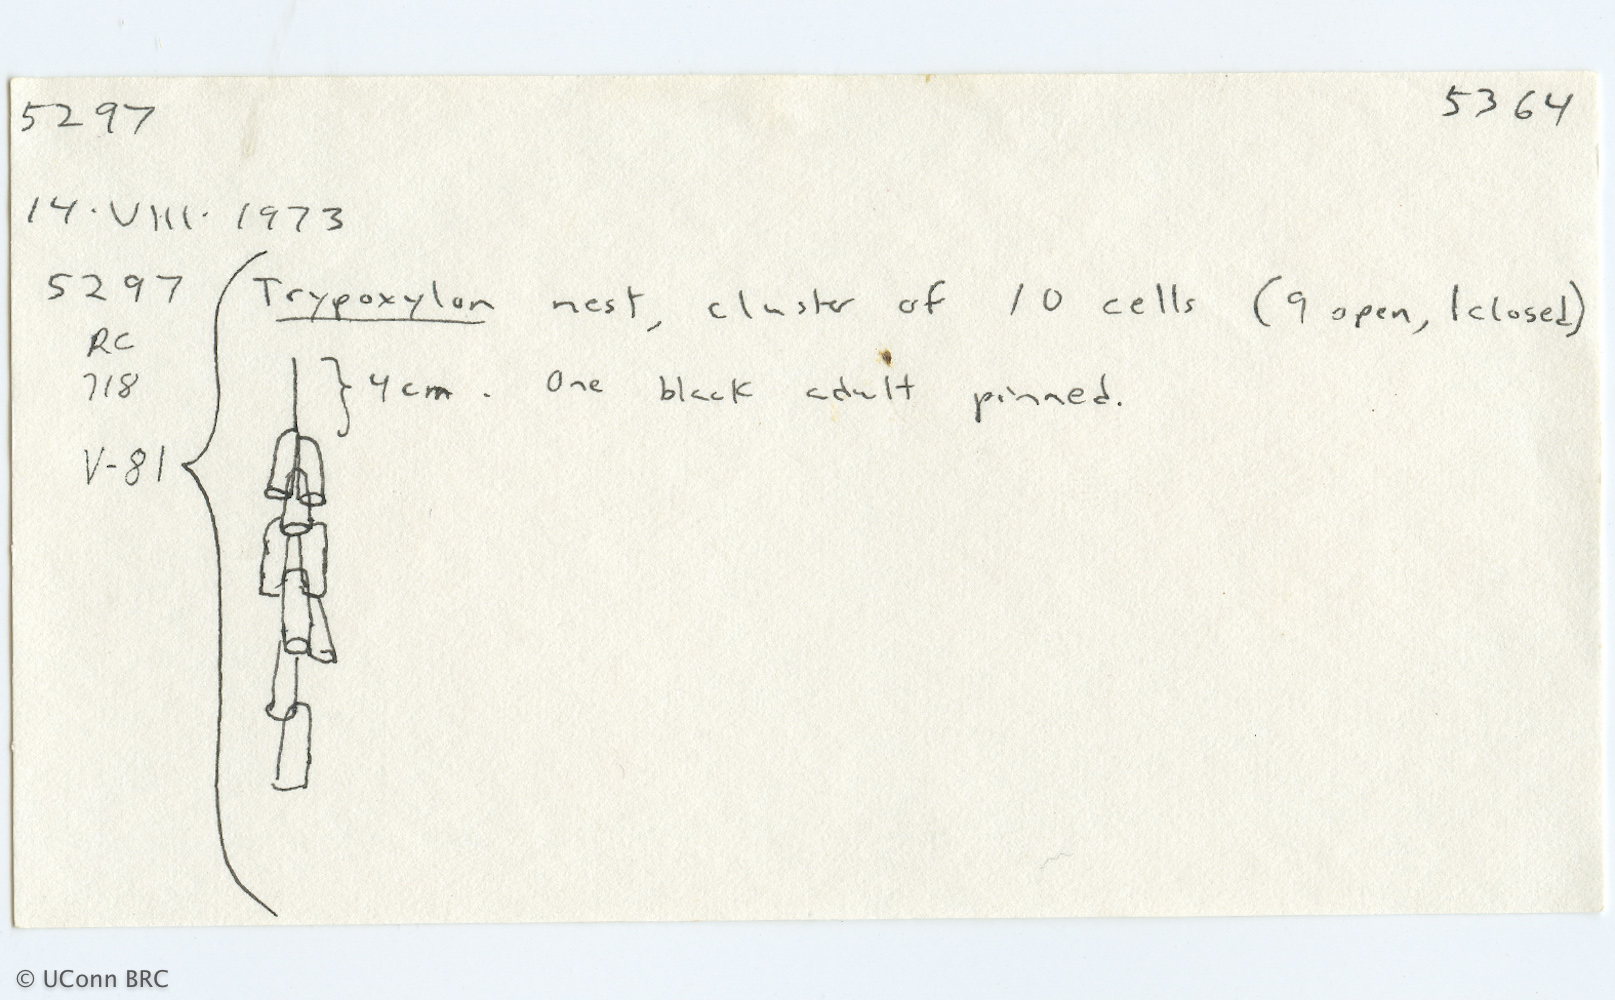 5297 5364
14·VIII·1973
5297 Trypoxylon nest, cluster of 10 cells (9 open, 1 closed)
RC
718 4cm. One black adult pinned.
V-81
© UConn BRC